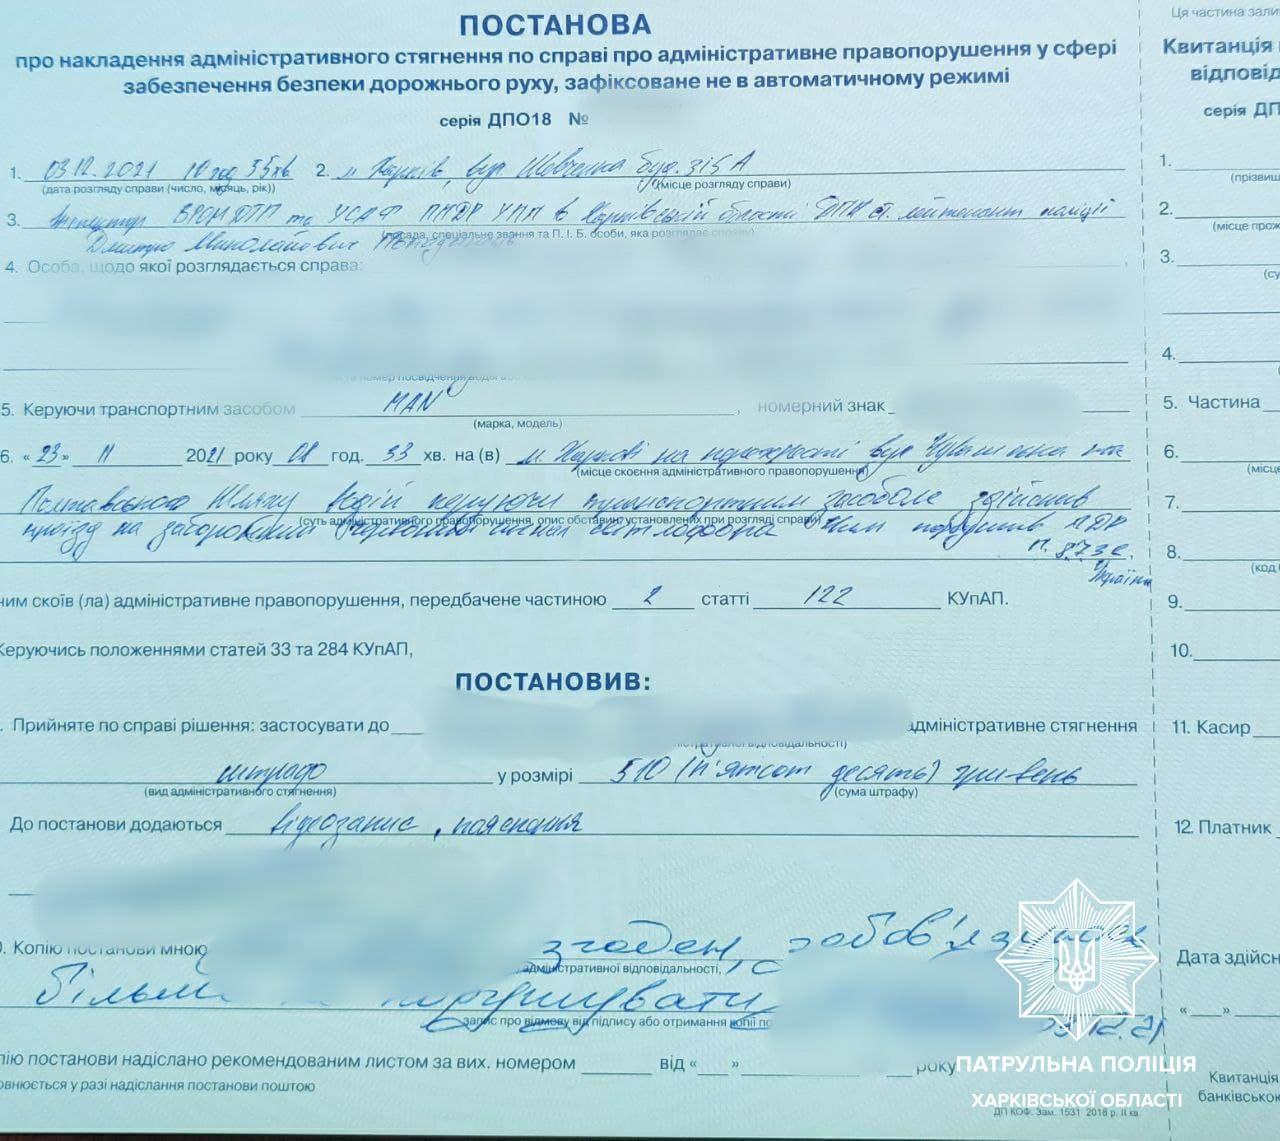 ПОСТАНОВА
про накладення адміністративного стягнення по справі про адміністративне правопорушення у сфері
забезпечення безпеки дорожнього руху, зафіксоване не в автоматичному режимі
серія ДПО18 №
1. 03.12.2021 10 год 35 хв 2. м. Харків, вул. Шевченка буд. 315 А
(дата розгляду справи (число, місяць, рік)) (місце розгляду справи)
3. Інспектор та в Харківській області ДПП ст. лейтенант поліції
(посада, спеціальне звання та П. І. Б. особи, яка розглядає справу)
Дмитро Миколайович
4. Особа, щодо якої розглядається справа:
5. Керуючи транспортним засобом MAN , номерний знак
(марка, модель)
6. «23» 11 2021 року 08 год. 33 хв. на (в) м. Харкові на перехресті вул. та
(місце скоєння адміністративного правопорушення)
Полтавського Шляху водій керуючи транспортним засобом здійснив
(суть адміністративного правопорушення, опис обставин, установлених при розгляді справи)
проїзд на заборонений сигнал світлофора чим порушив ПДР
п. 8.7.3 е.
України
ним скоїв (ла) адміністративне правопорушення, передбачене частиною 2 статті 122 КУпАП.
Керуючись положеннями статей 33 та 284 КУпАП,
ПОСТАНОВИВ:
. Прийняте по справі рішення: застосувати до адміністративне стягнення
штраф у розмірі 510 (п'ятсот десять) гривень
(вид адміністративного стягнення) (сума штрафу)
До постанови додаються відеозапис, пояснення
. Копію постанови мною згоден, зобов'язуюсь
адміністративної відповідальності,
більш не порушувати
запис про відмову від підпису або отримання копії по
ію постанови надіслано рекомендованим листом за вих. номером від « » року
овнюється у разі надіслання постанови поштою
ДП КОФ. Зам. 1531 2018 р. II кв.
Ця частина зали
Квитанція
відповід
серія ДП
1.
(прізвищ
2.
(місце прож
3.
(су
4.
5. Частина
6.
(місце
7.
8.
(код
9.
10.
11. Касир
12. Платник
Дата здійсн
« »
Квитанція
банківською
ПАТРУЛЬНА ПОЛІЦІЯ
ХАРКІВСЬКОЇ ОБЛАСТІ